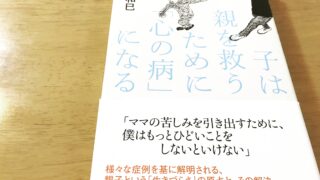 和巳
子は
親を救う
ために
「心の病」
になる
「ママの苦しみを引き出すために、
僕はもっとひどいことを
しないといけない」
様々な症例を基に解明される、